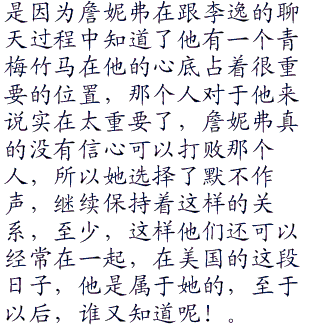 是因为詹妮弗在跟李逸的聊
天过程中知道了他有一个青
梅竹马在他的心底占着很重
要的位置，那个人对于他来
说实在太重要了，詹妮弗真
的没有信心可以打败那个
人，所以她选择了默不作
声，继续保持着这样的关
系，至少，这样他们还可以
经常在一起，在美国的这段
日子，他是属于她的，至于
以后，谁又知道呢！。